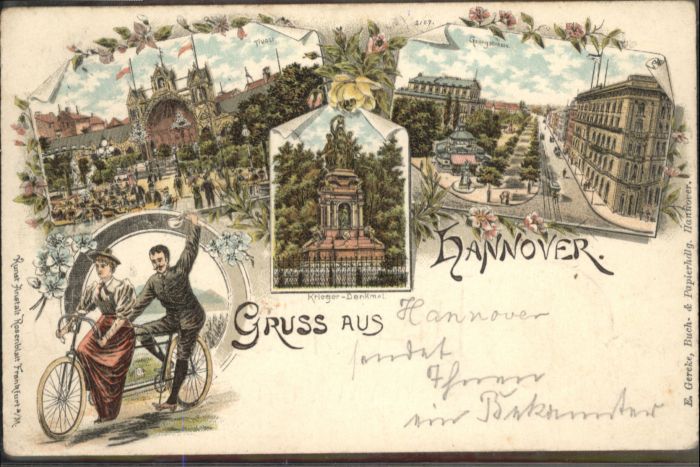 2127.
TIVOLI
Georgstrasse.
Krieger-Denkmal.
GRUSS AUS HANNOVER.
Hannover
sendet
Ihnen
ein Bekannter
Kunst Anstalt Rosenblatt Frankfurt a/M.
E. Gereke, Buch- & Papierhdlg. Hannover.